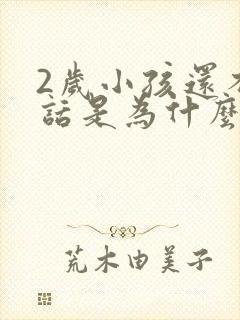 2歲小孩還不
話是為什麼
荒木由美子